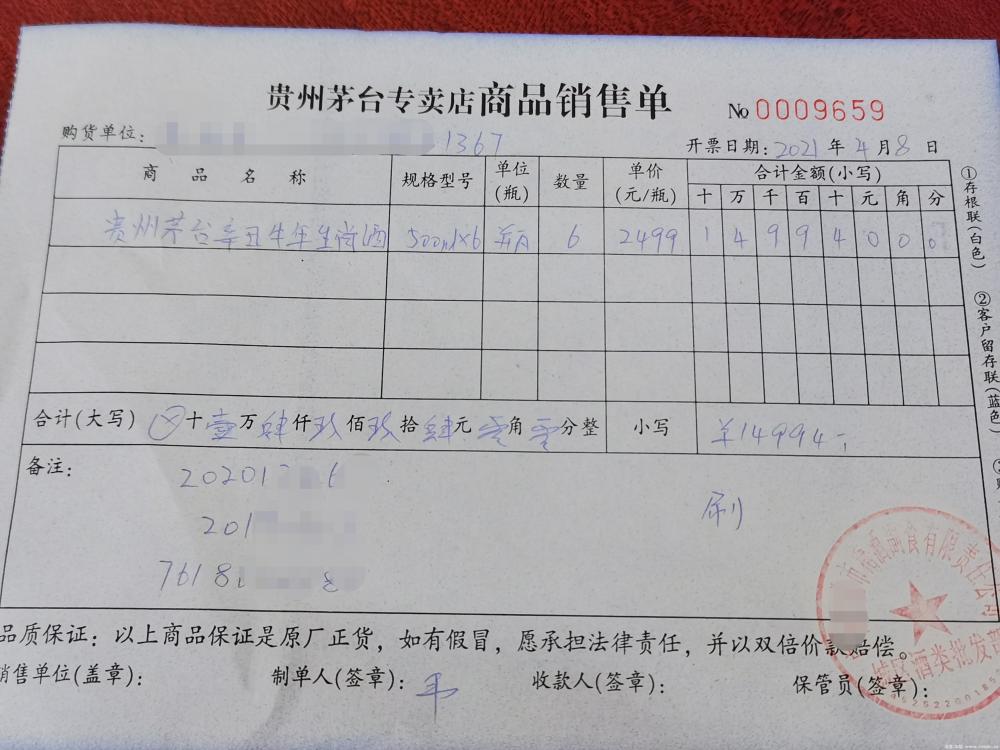 贵州茅台专卖店商品销售单 No 0009659
购货单位: 1367 开票日期: 2021 年 4 月 8 日
商品名称 规格型号 单位(瓶) 数量 单价(元/瓶) 合计金额(小写)
十 万 千 百 十 元 角 分
贵州茅台辛丑牛年生肖酒 500ml×6 瓶 6 2499 1 4 9 9 4 0 0 0
合计(大写) 十壹万肆仟玖佰玖拾肆元零角零分整 小写 ¥14994
备注:
刷
品质保证: 以上商品保证是原厂正货,如有假冒,愿承担法律责任,并以双倍价款赔偿。
销售单位(盖章): 制单人(签章): 收款人(签章): 保管员(签章):
①存根联(白色)
②客户留存联(蓝色)
食有限责任公司
城区酒类批发部